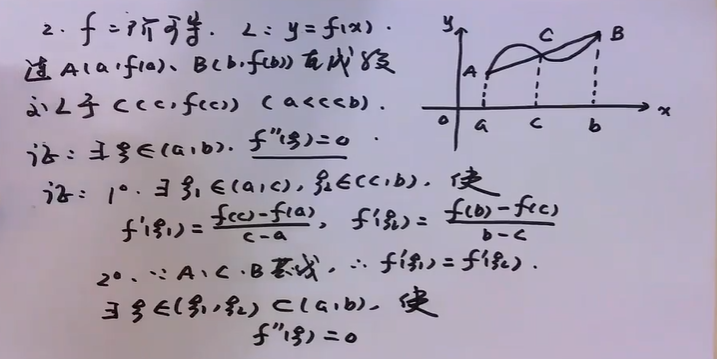 2. f二阶可导. L: y=f(x).
过A(a,f(a))、B(b,f(b))直线段
交L于C(c,f(c)) (a<c<b).
证: ∃ξ∈(a,b). f''(ξ)=0.
证: 1°. ∃ξ₁∈(a,c), ξ₂∈(c,b). 使
f'(ξ₁)=\frac{f(c)-f(a)}{c-a}, f'(ξ₂)=\frac{f(b)-f(c)}{b-c}
2°. ∵A、C、B共线, ∴f'(ξ₁)=f'(ξ₂).
∃ξ∈(ξ₁,ξ₂)⊂(a,b), 使
f''(ξ)=0
y
C
B
A
0 a c b x